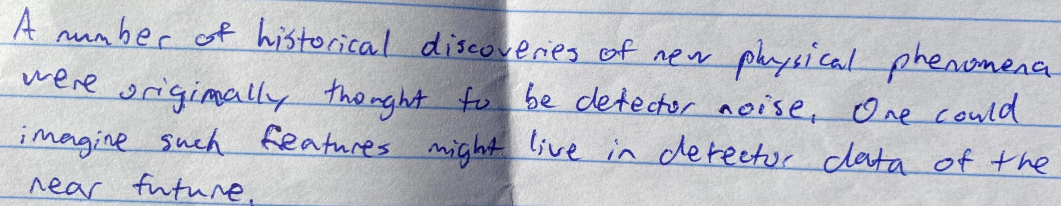 A number of historical discoveries of new physical phenomena
were originally thought to be detector noise. One could
imagine such features might live in detector data of the
near future.